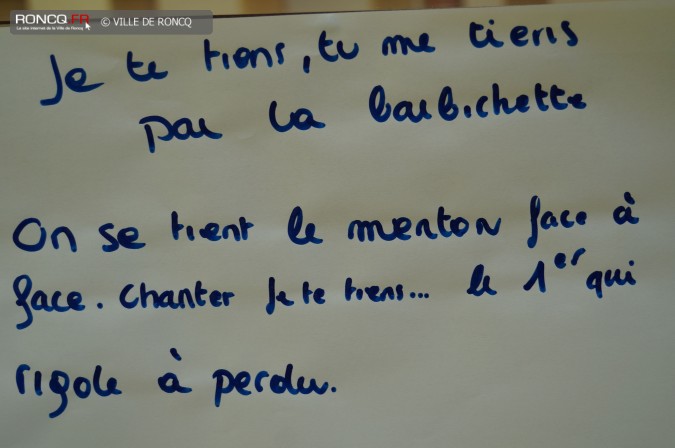 RONCQ.FR © VILLE DE RONCQ
Le site internet de la Ville de Roncq
Je te tiens, tu me tiens
par la barbichette
On se tient le menton face à
face. Chanter Je te tiens... le 1er qui
rigole à perdu.